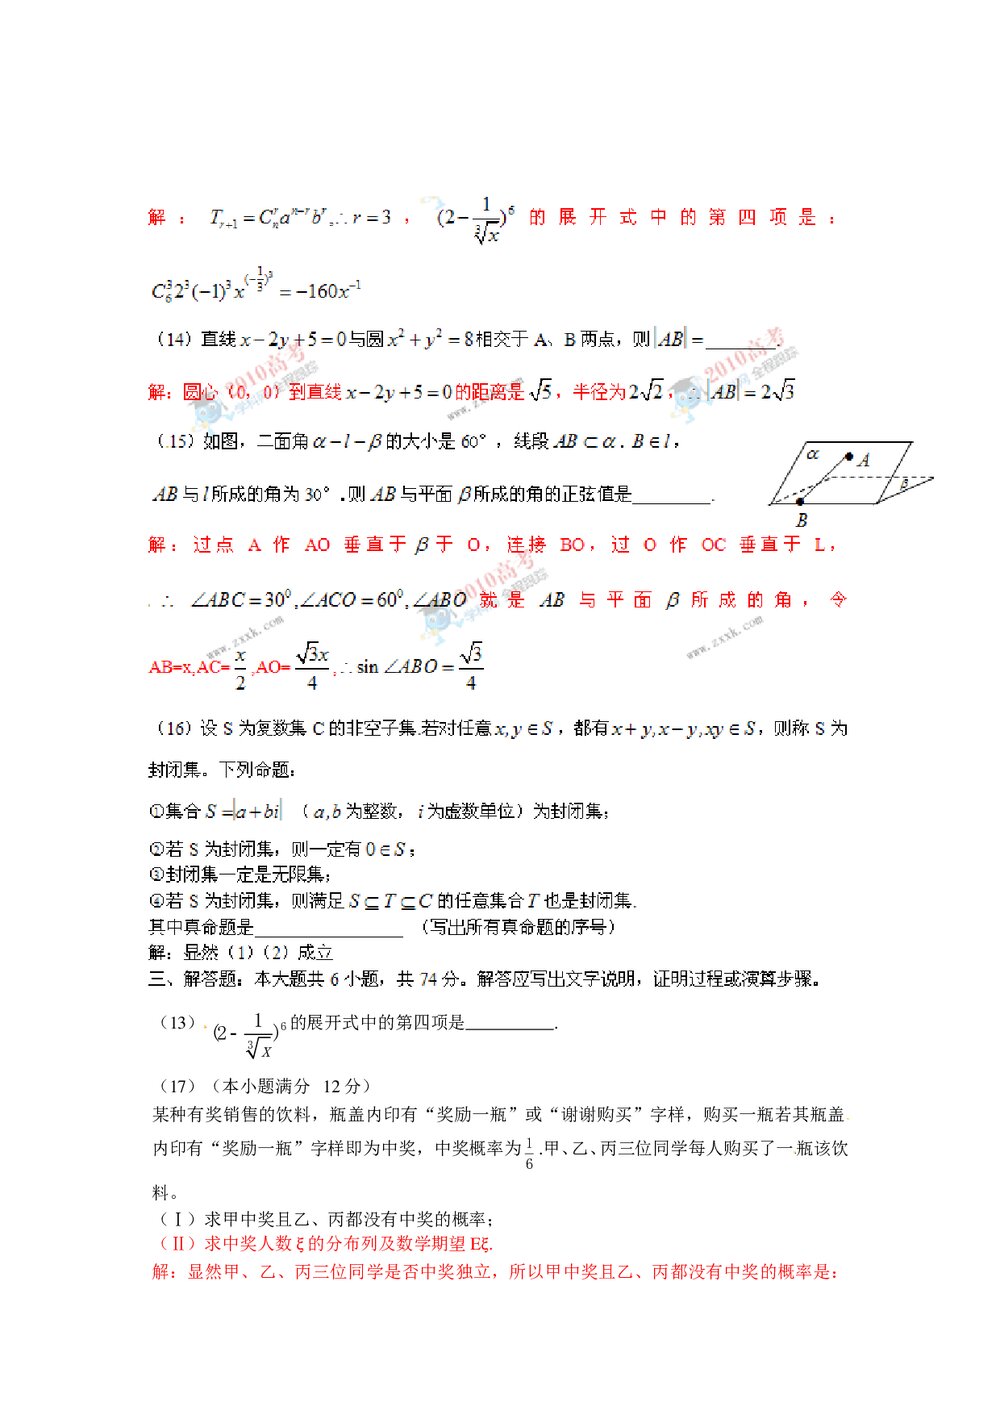 解： T_{r+1}=C_n^r a^{n-r} b^r,∴r=3， (2-\frac{1}{\sqrt[3]{x}})^6 的展开式中的第四项是：
C_6^3 2^3 (-1)^3 x^{(-\frac{1}{3})^3} = -160x^{-1}
（14）直线 x-2y+5=0 与圆 x^2+y^2=8 相交于 A、B 两点，则 |AB|=________.
解：圆心（0，0）到直线 x-2y+5=0 的距离是 \sqrt{5}，半径为 2\sqrt{2}，∴|AB|=2\sqrt{3}
（15）如图，二面角 α-l-β 的大小是 60°，线段 AB⊂α. B∈l，
AB 与 l 所成的角为 30°.则 AB 与平面 β 所成的角的正弦值是_________.
α A β B
解：过点 A 作 AO 垂直于 β 于 O，连接 BO，过 O 作 OC 垂直于 L，
∴ ∠ABC=30^0,∠ACO=60^0,∠ABO 就是 AB 与平面 β 所成的角，令
AB=x,AC=\frac{x}{2},AO=\frac{\sqrt{3}x}{4},∴sin∠ABO=\frac{\sqrt{3}}{4}
（16）设 S 为复数集 C 的非空子集.若对任意 x,y∈S，都有 x+y,x-y,xy∈S，则称 S 为
封闭集。下列命题：
①集合 S=|a+bi| （a,b 为整数，i 为虚数单位）为封闭集；
②若 S 为封闭集，则一定有 0∈S；
③封闭集一定是无限集；
④若 S 为封闭集，则满足 S⊆T⊆C 的任意集合 T 也是封闭集.
其中真命题是_________________ （写出所有真命题的序号）
解：显然（1）（2）成立
三、解答题：本大题共 6 小题，共 74 分。解答应写出文字说明，证明过程或演算步骤。
（13）(2-\frac{1}{\sqrt[3]{x}})^6 的展开式中的第四项是__________.
（17）（本小题满分 12 分）
某种有奖销售的饮料，瓶盖内印有“奖励一瓶”或“谢谢购买”字样，购买一瓶若其瓶盖
内印有“奖励一瓶”字样即为中奖，中奖概率为 \frac{1}{6}.甲、乙、丙三位同学每人购买了一瓶该饮
料。
（Ⅰ）求甲中奖且乙、丙都没有中奖的概率；
（Ⅱ）求中奖人数 ξ 的分布列及数学期望 Eξ.
解：显然甲、乙、丙三位同学是否中奖独立，所以甲中奖且乙、丙都没有中奖的概率是：
2010高考
学科网 全程跟踪
www.zxxk.com
2010高考
学科网 全程跟踪
2010高考
学科网 全程跟踪
www.zxxk.com
www.zxxk.com